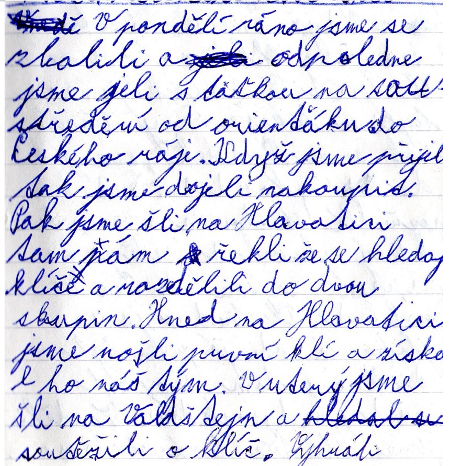 V pondělí ráno jsme se
zbalili a odpoledne
jsme jeli s tátkou na sou-
středění od orientáku do
českého ráje. Když jsme přijel
tak jsme dojeli nakoupit.
Pak jsme šli na Hlavatici
tam nám řekli že se hledaj
klíče a rozdělili do dvou
skupin. Hned na Hlavatici
jsme nošli první klí a získa
l ho náš tým. V uterý jsme
šli na Valdštejn a hledal se
soutěžili o klíč. Vyhráli